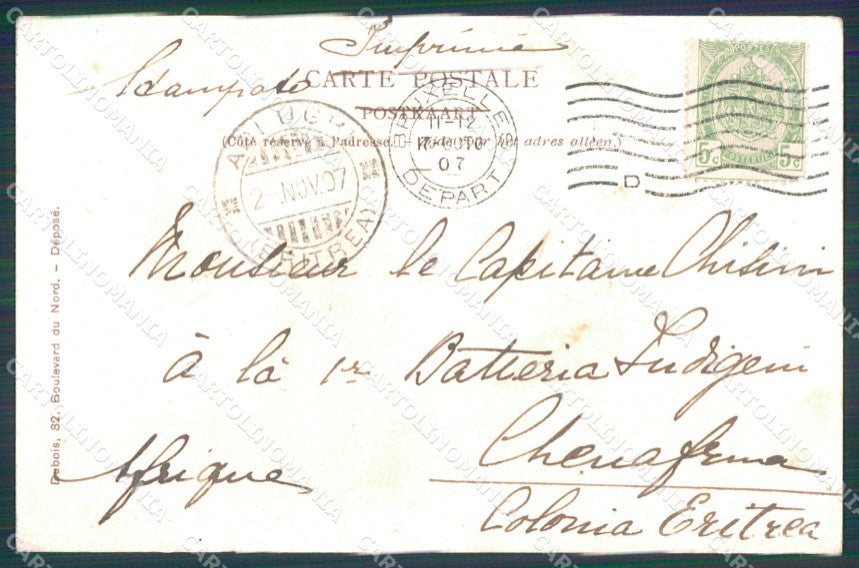 Imprimé
Stampato
CARTE POSTALE
POSTKAART
(Côté réservé à l'adresse. adres alléen.)
ERITREA
2 - NOV. 07
BRUXELLES
11-12
07
DEPART
D
POSTES
5c POSTERIJEN 5c
Monsieur le Capitaine Chisini
à la 1re Batteria Indigeni
Chenafena
Afrique
Colonia Eritrea
Dubois, 82, Boulevard du Nord. - Déposé.
CARTOLINOMANIA